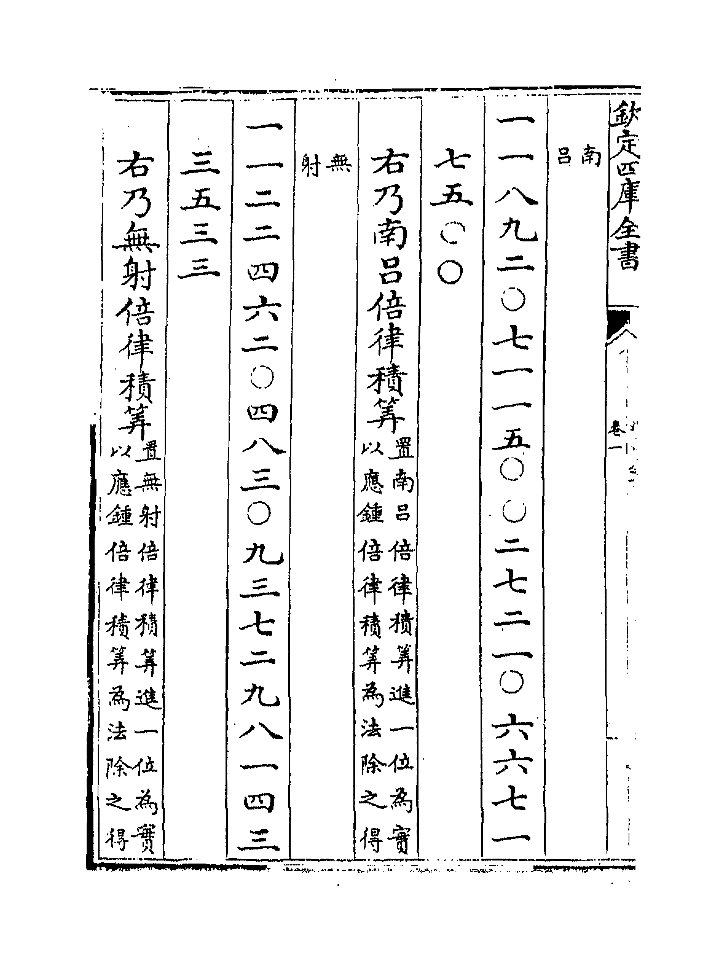 欽定四庫全書
卷一
南呂
一一八九二〇七一一五〇〇二七二一〇六六七一
七五〇〇
右乃南呂倍律積筭置南呂倍律積筭進一位為實
以應鍾倍律積筭為法除之得
無射
一一二二四六二〇四八三〇九三七二九八一四三
三五三三
右乃無射倍律積筭置無射倍律積筭進一位為實
以應鍾倍律積筭為法除之得